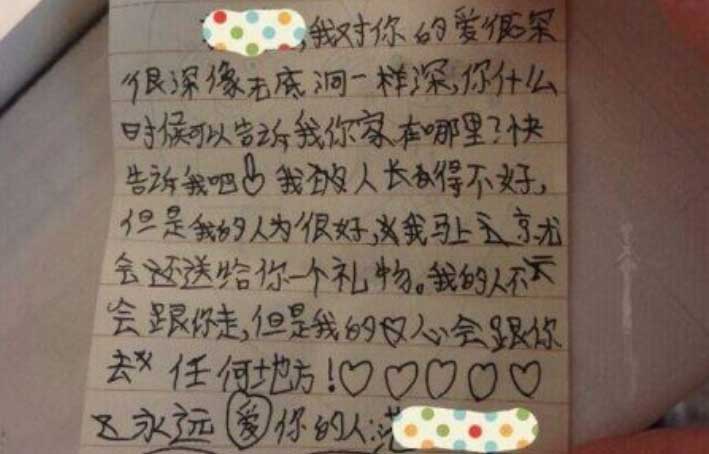 ,我对你的爱很深
很深像无底洞一样深,你什么
时候可以告诉我你家在哪里?快
告诉我吧 我的人长得不好,
但是我的人为很好,我马上就
会还送给你一个礼物。我的人不
会跟你走,但是我的心会跟你
去 任何地方!♡♡♡♡♡
永远爱你的人:范